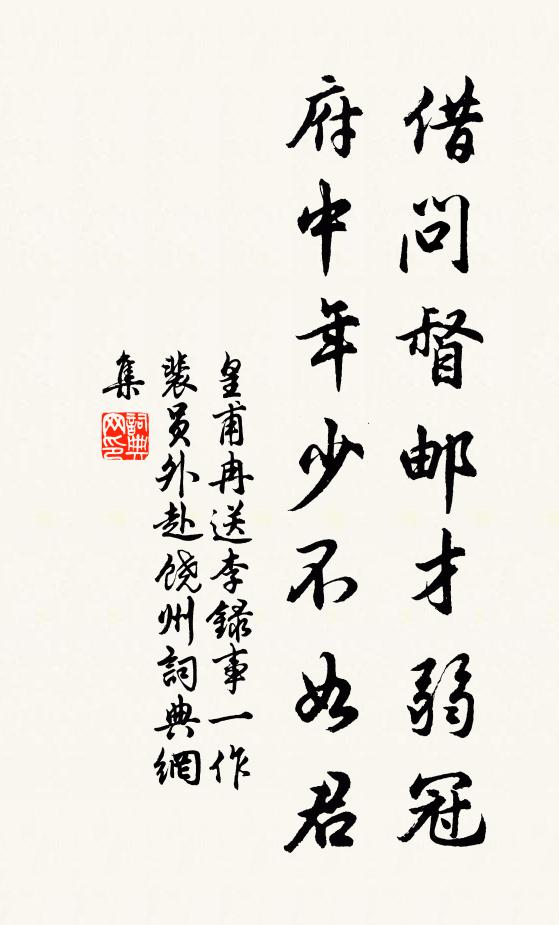 借问督邮才弱冠
府中年少不如君
皇甫冉送李録事一作
裴员外赴饶州詞典網
集
詞典
网印